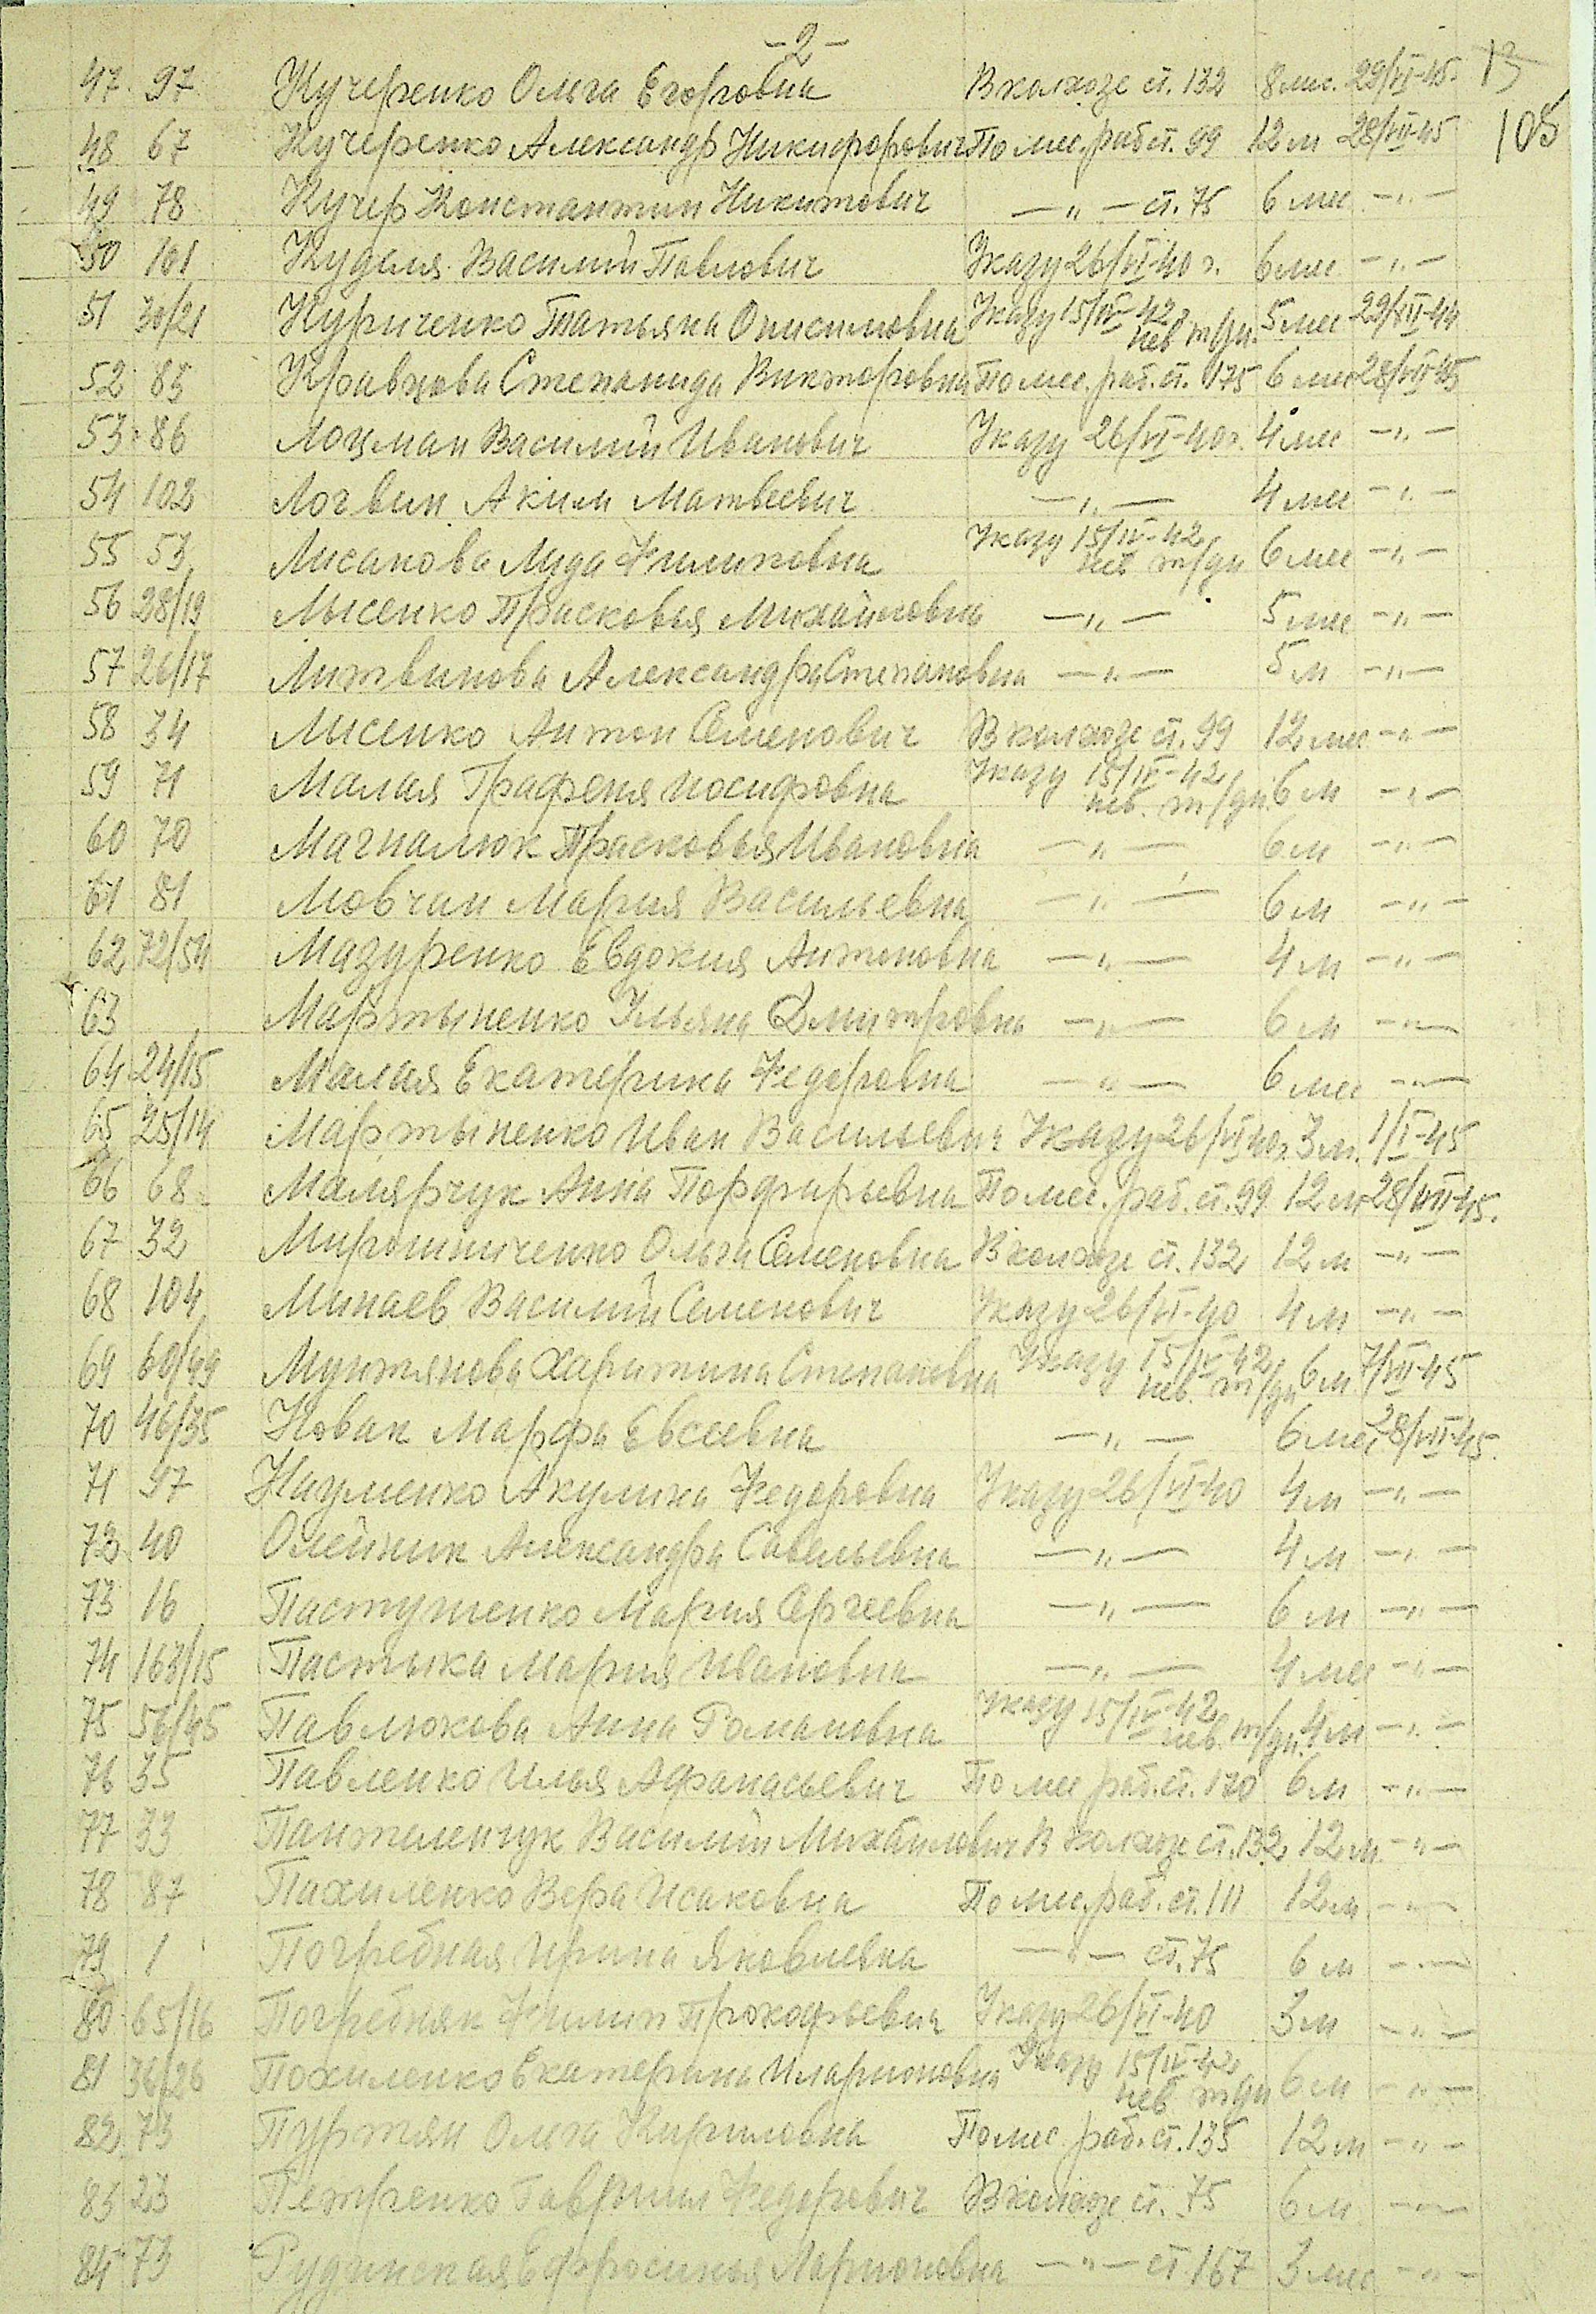 -2-
13
105
47 97 Кучеренко Ольга Егоровна В колхозе ст. 132 8 мес. 29/VI-45
48 67 Кучеренко Александр Никифорович По мес. раб ст. 99 12 м 28/VII-45
49 78 Кучер Константин Никитович —„— ст. 75 6 мес —„—
50 101 Кудаля Василий Павлович Указу 26/VI-40 г. 6 мес —„—
51 30/21 Куриченко Татьяна Онисимовна Указу 15/IV-42 нев т/дн. 5 мес 29/XII-44
52 85 Кравцова Степанида Викторовна По мес. раб. ст. 175 6 мес 28/VII-45
53 86 Лоцман Василий Иванович Указу 26/VI-40 г. 4 мес —„—
54 102 Логвин Аким Матвеевич —„— 4 мес —„—
55 53 Лисакова Лида Филиповна Указу 15/IV-42 нев т/дн 6 мес —„—
56 28/19 Лысенко Прасковья Михайловна —„— 5 мес —„—
57 26/17 Литвинова Александра Степановна —„— 5 м —„—
58 34 Лисенко Антон Семенович В колхозе ст. 99 12 мес —„—
59 71 Малая Графеня Иосифовна Указу 15/IV-42 нев. т/дн. 6 м —„—
60 70 Магналюк Прасковья Ивановна —„— 6 м —„—
61 81 Мовчан Мария Васильевна —„— 6 м —„—
62 72/54 Мазуренко Евдокия Антоновна —„— 4 м —„—
63 Мартыненко Ульяна Дмитровна —„— 6 м —„—
64 24/15 Малая Екатерина Федоровна —„— 6 мес —„—
65 25/14 Мартыненко Иван Васильевич Указу 26/VI 40 г. 3 м. 1/VI-45
66 68 Малярчук Анна Порфирьевна По мес. раб. ст. 99 12 м 28/VII-45.
67 32 Мирошниченко Ольга Семеновна В колхозе ст. 132 12 м —„—
68 104 Минаев Василий Семенович Указу 26/VI-40 4 м —„—
69 60/49 Мунтянова Харитина Степановна Указу 15/IV-42 нев. т/дн 6 м 7/VII-45
70 46/35 Новак Марфа Евсеевна —„— 6 мес 28/VII-45.
71 97 Науменко Акулина Федоровна Указу 26/VI-40 4 м —„—
72 40 Олейник Александра Савельевна —„— 4 м —„—
73 16 Пастушенко Мария Сергеевна —„— 6 м —„—
74 163/15 Пастыка Мария Ивановна —„— 4 мес —„—
75 56/45 Павлюкова Анна Романовна Указу 15/IV-42 нев. т/дн. 4 м —„—
76 35 Павленко Илья Афанасьевич По мес раб. ст. 170 6 м —„—
77 33 Пантеленчук Василий Михайлович В колхозе ст. 132 12 м —„—
78 87 Пахиленко Вера Исаковна По мес. раб. ст. 111 12 м —„—
79 1 Погребная Ирина Яковлевна —„— ст. 75 6 м —„—
80 65/16 Погребняк Филип Прокофьевич Указу 26/VI-40 3 м —„—
81 36/26 Похиленко Екатерина Иларионовна Указу 15/IV-42 нев т/дн 6 м —„—
82 73 Пуртян Ольга Кириловна По мес. раб. ст. 135 12 м —„—
83 23 Петренко Гаврыил Федорович В колхозе ст. 75 6 м —„—
84 73 Рудинская Ефросинья Ларионовна —„— ст 167 3 мес —„—